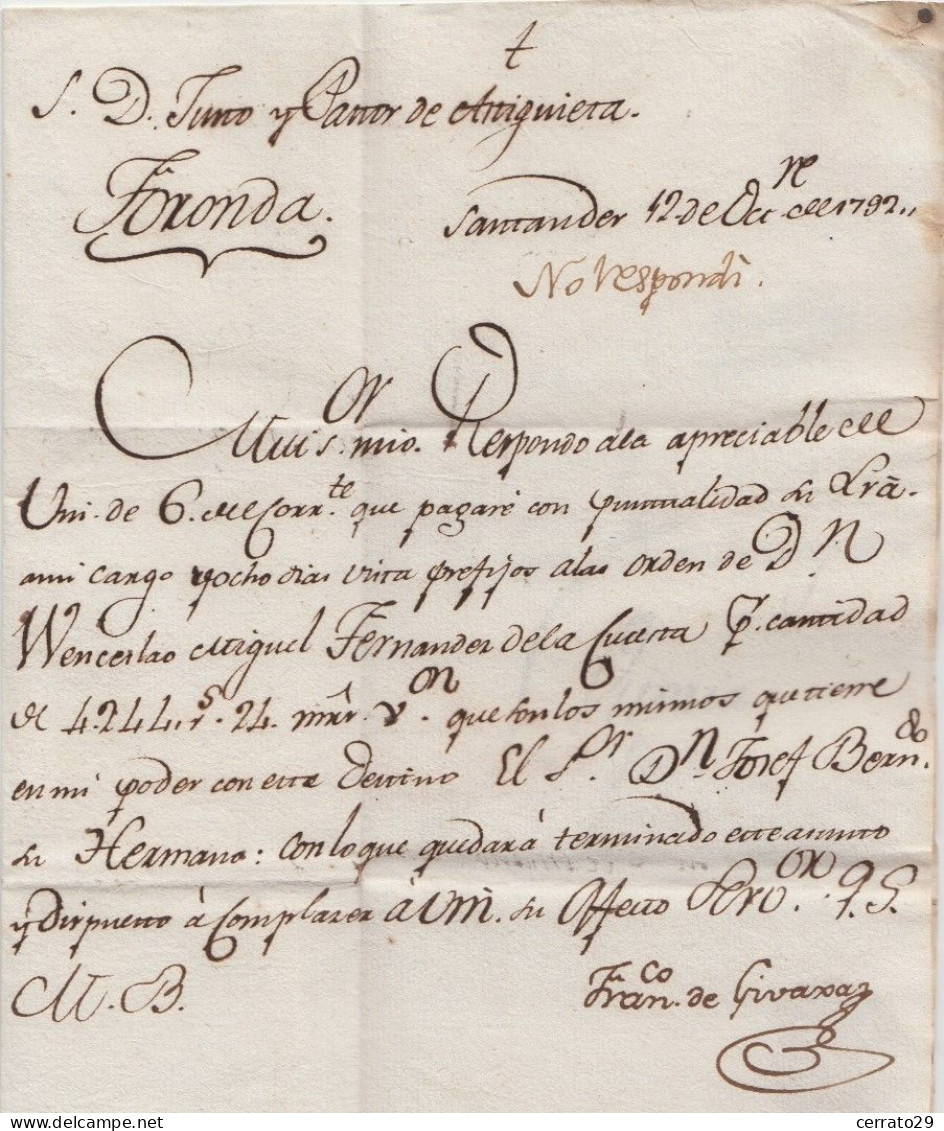 †
S. D. Justo y Pastor de Astiguieta.
Foronda. Santander 12. de Oct.re de 1792,,
No Respondi.
Mui s.or mio. Respondo ala apreciable de
Vm. de 6. del Corr.te que pagaré con puntualidad su Lrã.
a mi cargo y ocho dias vista prefijos a las orden de D.n
Wenceslao Miguel Fernander de la Cuesta p.r cantidad
de 4.244. r.s 24. mrs. v.on que son los mismos que tiene
en mi poder con este destino El S.or D.n Josef Bern.do
su Hermano: con lo que quedará terminado este asunto
y dispuesto à Complazer à Vm. su Affecto Serv.or Q. S.
M. B. Fran.co de Givaxaz
cerrato29